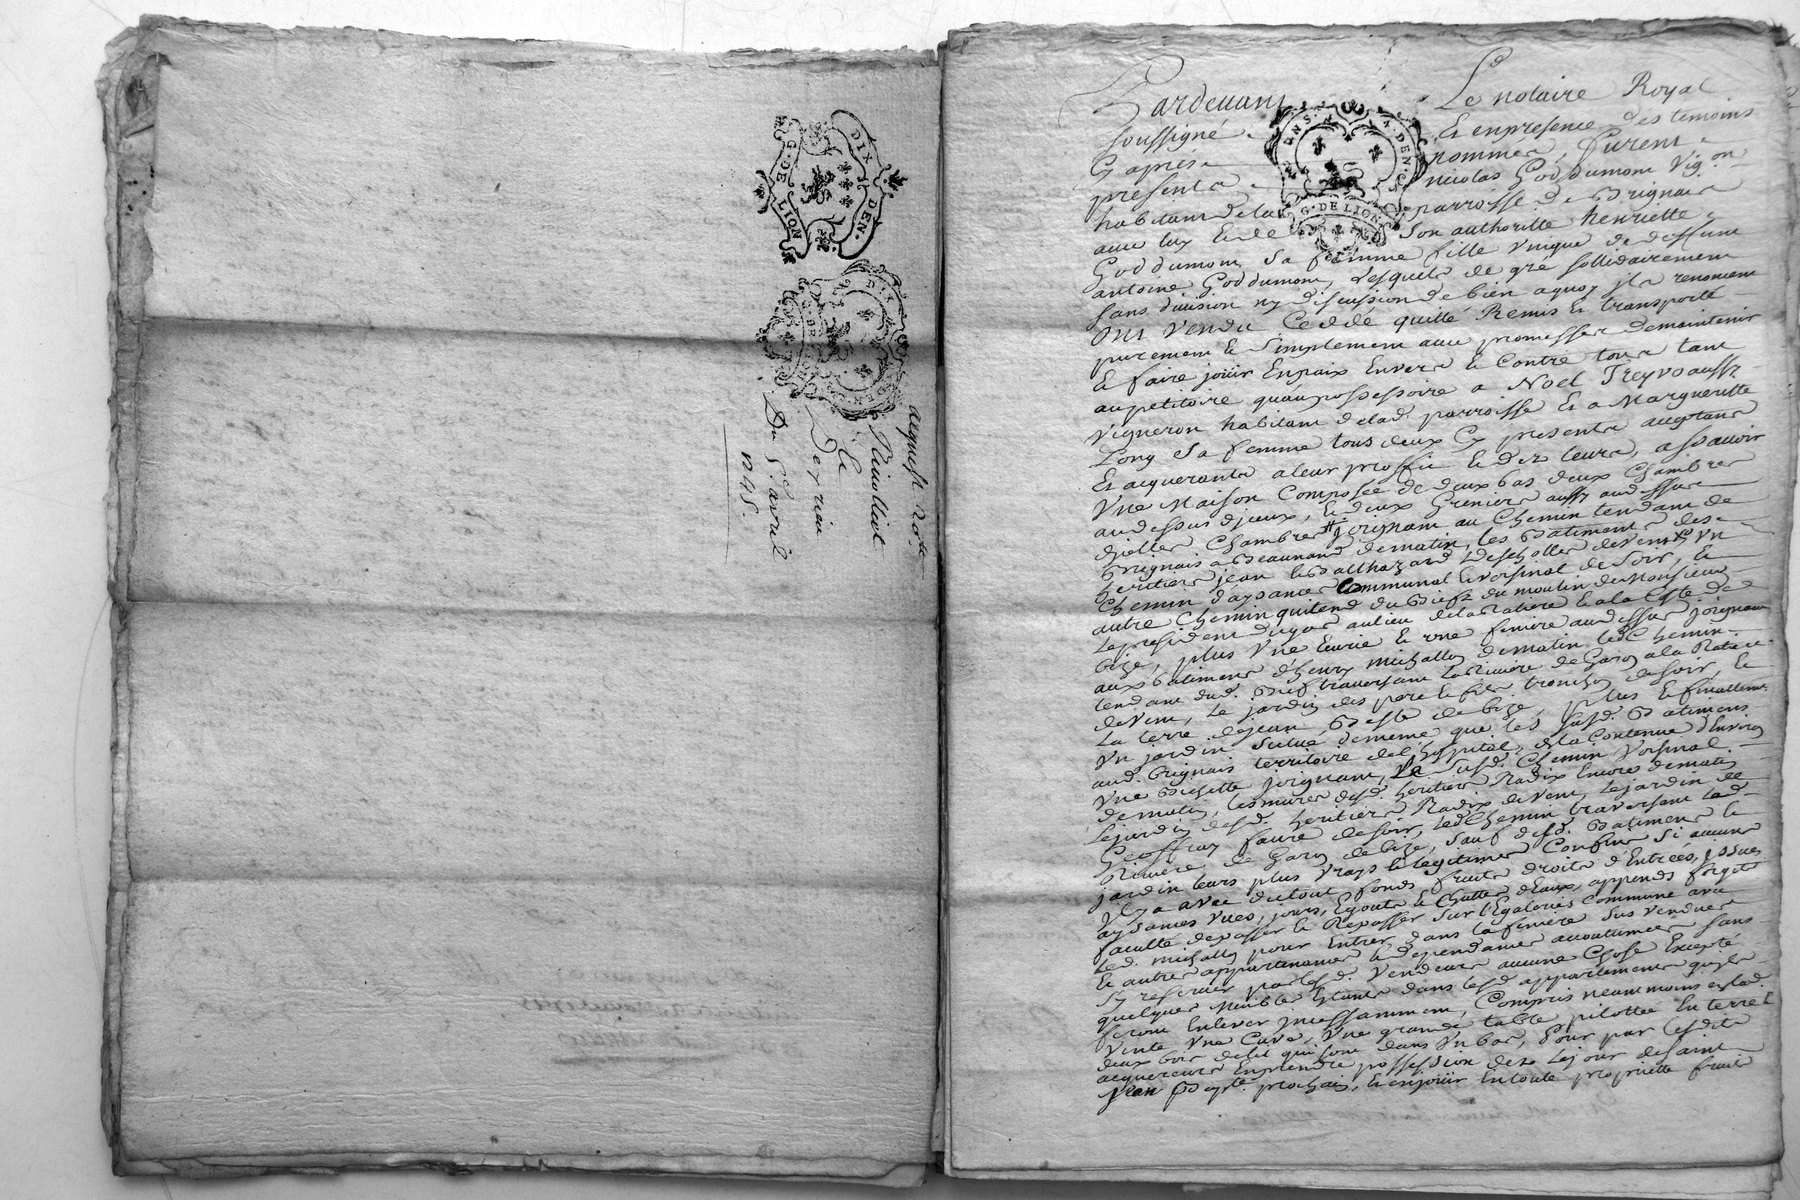 DIX DEN.
G. DE LION
DIX DEN.
G. DE LION
acquest
Du 5e avril
1745.
Pardevant Le notaire Royal
soussigné Et en presence des temoins
Cy aprés nommés, furent
presents nicolas Goddumont Vig.on
habitant dela parroisse de Brignais
avec luy Et de Son authoritté henriette
Goddumont Sa femme fille Unique de deffunt
antoine Goddumont, Lesquels de gré sollidairement
sans division ny discussion de bien aquoy jls renoncent
Ont Vendu Ceddé quitté Remis Et transporté
purement Et simplement avec promesses de maintenir
Et faire joüir En paix Envers Et Contre tous tant
au petitoire quau possessoire a Noel Treyvo aussy
Vigneron habitant de lad. parroisse Et a Margueritte
Long Sa femme tous deux Cy presents acceptans
Et acquerants a leur proffit Et des leurs, a sçavoir
Une Maison Composée de deux bas deux Chambres
au dessus d'jceux, Et deux Greniers aussy au dessus
d'jcelles Chambres joignant au Chemin tendant de
Brignais a Beaunand de matin, les Batiments des
heritiers jean Balthazard de vent Un
Chemin d'aysance Commun Et Voisinal de Soir, Et
autre Chemin qui tend du Bief du moulin de Monsieur
Le president au lieu de la Ratiere Et a la Coste de
bize, plus Une Ecurie Et Une feniere au dessus joignant
aux batiments d'henry michallon de matin, led. Chemin
tendant dud. Bief traversant la Riviere de Garon a la Ratiere
de Vent, Le jardin des pere Et fils tronchon de soir, Et
La terre de jean Beste de bize, plus Et finallement
Un jardin Scitué de meme que les susd. Batimens
aud. Brignais territoire de L'hopital, de la Contenue d'Environ
Une Bichette joignant, Le susd. Chemin Voisinal
de matin, les murs desd. heritiers Radix Encore de matin
Le jardin desd. heritiers Radix de Vent, Le jardin de
Geoffray faure de soir, led. Chemin traversant lad.
Riviere de Garon de bize, sauf desd. Batiments Et
jardin leurs plus Vrays Et legitimes Confins Si aucuns
Il y a avec du tout fonds fruits droits d'Entrées, jssues
aysances Vües, jours, Egouts Et Chuttes d'Eaux, appends
faculté de passer Et Repasser Sur Commune avec
Led. michallon pour Entrer dans la feniere Sus Vendue
Et autres appartenances Et dependances accoutumées Sans
Sy reserver par lesd. Vendeurs aucune Chose Excepté
quelques Meubles Etants dans lesd. appartements qu'jls
feront Enlever jncessamment, Compris neantmoins En lad.
Vente Une Cuve, Une grande table pilottée En terre Et
deux bois de lit qui sont dans Un bas, Pour par lesdits
acquereurs En prendre possession dez Le jour de Saint
jean Bapte. prochain, Et en joüir En toute proprieté fruits